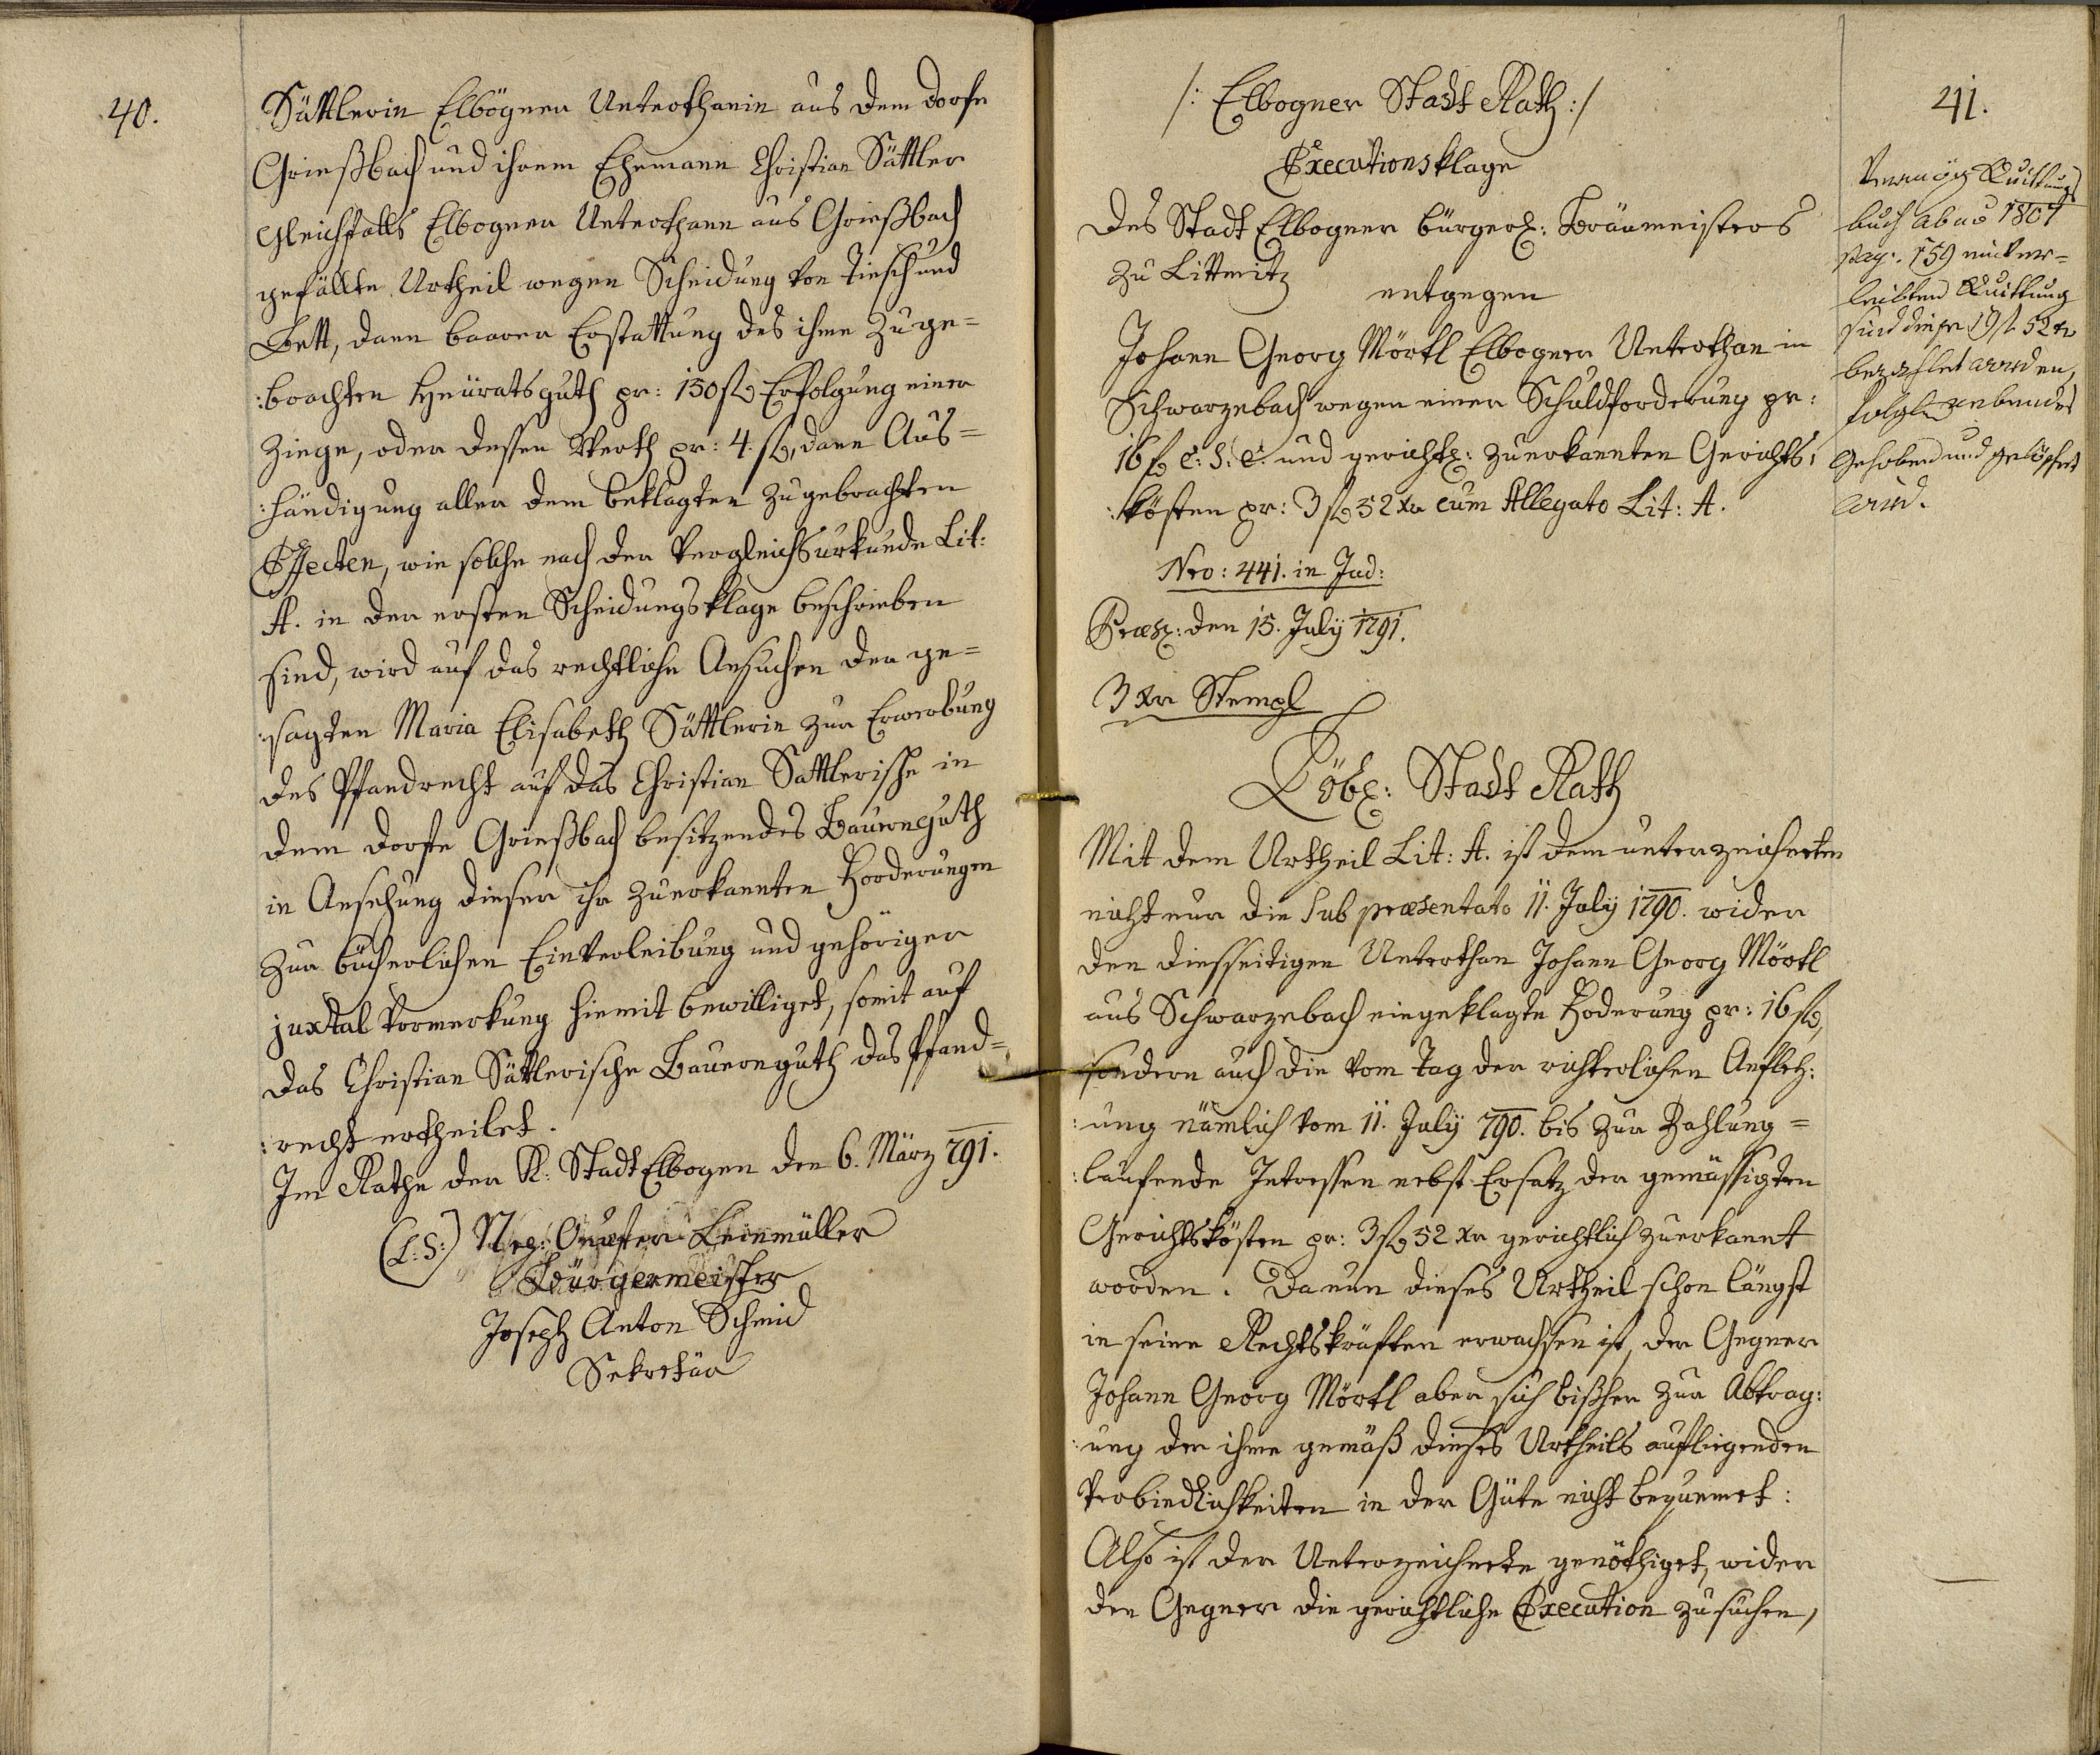 40.
Sättlerin Elbögner Unterthanin aus dem Dorfe
Grießbach und ihrem Ehemann Christian Sättler
gleichfalls Elbogner Unterthann aus Grießbach
gefällte Urtheil wegen Scheidung von Tiesch und
Bett, dann baarer Erstattung des ihme zuge=
:brachten Heüratsguth pr: 150 fl Erfolgung einer
Ziege, oder dessen Werth pr: 4. fl, dann Aus=
:händigung aller dem beklagten zugebrachten
Effecten, wie solche nach der Vergleichsurkunde Lit:
A. in der ersten Scheidungsklage beschrieben
sind, wird auf das rechtliche Ansuchen der ge=
:sagten Maria Elisabeth Sättlerin zur Erwerbung
des Pfandrecht auf das Christian Sattlerische in
dem Dorfe Grießbach besitzendes Bauernguth
in Ansehung dieser ihr zuerkannten Forderungen
zur bücherlichen Einverleibung und gehöriger
juxtal Vormerkung hiemit bewilliget, somit auf
das Christian Sättlerische Bauernguth das Pfand=
:recht ertheilet.
Im Rathe der K: Stadt Elbogen den 6. März 791.
(L:S:) Leinmüller
Bürgermeister
Joseph Anton Schmid
Sekretär
41.
/: Elbogner Stadt Rath :/
Executionsklage
des Stadt Elbogner bürgerl: Bräumeisters
zu Littmitz
entgegen
Johann Georg Mörtl Elbogner Unterthan in
Schwarzebach wegen einer Schuldforderung pr:
16 fl C: S: C: und gerichtl: zuerkannten Gerichts:
:kösten pr: 3 fl 52 xr cum Allegato Lit: A.
Nro: 441. in Jud:
Præs: den 15. July 1791.
3 xr Stempl
Löbl: Stadt Rath
Mit dem Urtheil Lit: A. ist dem unterzeichneten
nicht nur die sub præsentato 11. July 1790. wider
den diesseitigen Unterthan Johann Georg Mörtl
aus Schwarzebach eingeklagte Foderung pr: 16 fl,
sondern auch die vom Tag der richterlichen
:ung nämlich vom 11. July 790. bis zur Zahlung=
:laufende Intressen nebst Ersatz der gemässigten
Gerichtskösten pr: 3 fl 52 xr gerichtlich zuerkannt
worden. Da nun dieses Urtheil schon längst
in seine Rechtskräften erwachsen ist, der Gegner
Johann Georg Mörtl aber sich bißher zur Abtrag:
:ung der ihme gemäß dieses Urtheils aufliegenden
Verbindlichkeiten in der Güte nicht bequemet:
Also ist der Unterzeichnete genöthiget, wider
den Gegner die gerichtliche Execution zu suchen,
Vermög Quittungs
buch ab ao 1804
pag. 159 einver=
leibten Quittung
sind diese 19 fl 52 xr
bezahlet worden,
gehoben und gelöschet
wird.